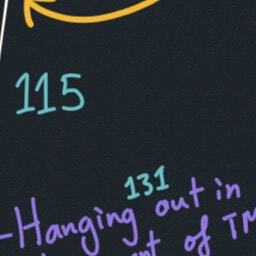 115
131
-Hanging out in
of TM